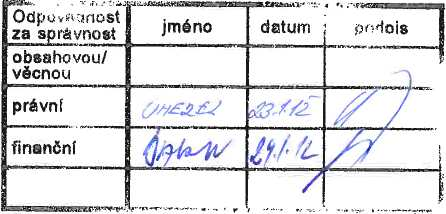 Odpovědnost za správnost jméno datum podpis
obsahovou/
věcnou
právní 23.1.12
finanční 24.1.12